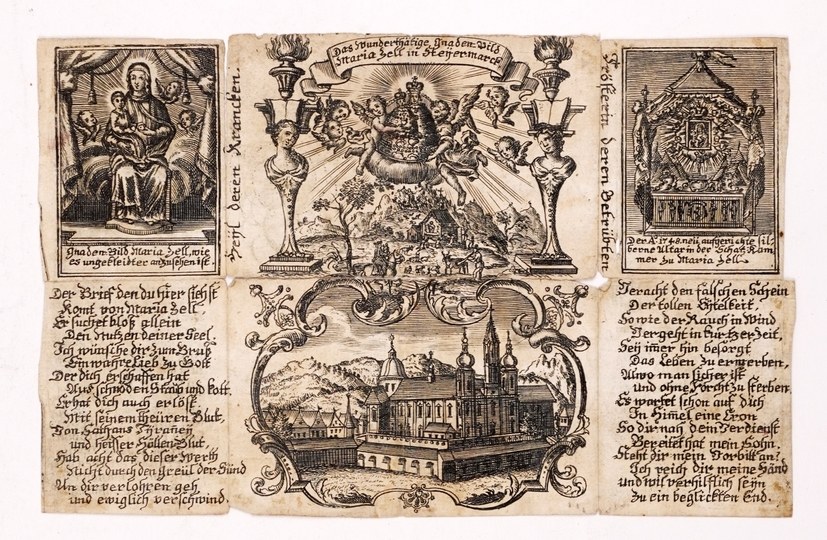 Das Wunderthätige Gnaden Bild
Maria Zell in Steÿermarck
Heÿl deren Krancken.
Trösterin deren Betrübten
Gnaden Bild Maria Zell, wie
es ungekleidter anzusehen ist.
Der A: 1748 neü aufgerichte sil-
berne Altar in der Schatz Kam-
mer zu Maria Zell.
Der Brief den du hier sihst
Komt von Maria Zell
Er suchet bloß allein
Den Nutzen deiner Seel
Ich wünsche dir zum Gruß
Ein wahre Lieb zu Gott
Der dich erschaffen hat
Aus schnöden Staub und Kott.
Er hat dich auch erlöst
Mit seinem theüren Blut,
Von Sathans Tyraneÿ
und heisser Höllen Glut,
Hab acht das dieser Werth
Nicht durch den Greül der Sünd
An dir verlohren geh
und ewiglich verschwind.
Veracht den falschen Schein
Der tollen Eitelkeit.
So wie der Rauch in Wind
Vergeht in kurtzer Zeit,
Seÿ im̄er hin besorgt
Das Leben zu erwerben,
Alwo man sicher ist
und ohne Forcht zu sterben.
Es wartet schon auf dich
In Him̄el eine Cron
So dir nach dein Verdienst
Bereitet hat mein Sohn.
Steht dir mein Vorbitt an?
Ich reich dir meine Händ
und wil verhilflich seÿn
Zu ein beglickten End.